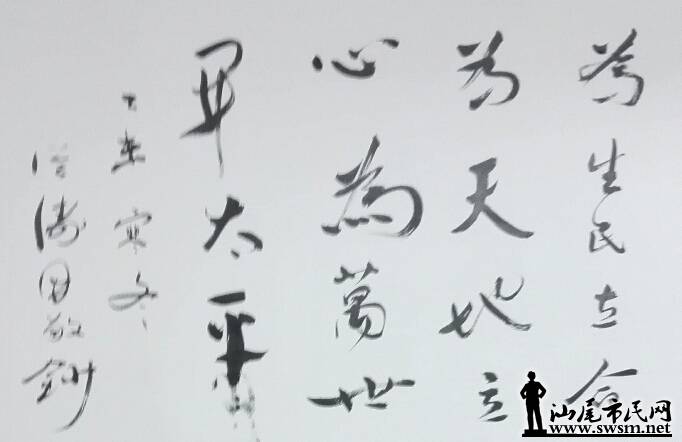 為生民立命
為天地立
心為萬世
開太平
丁亥寒冬
敬鈔
汕尾市民网
www.swsm.net